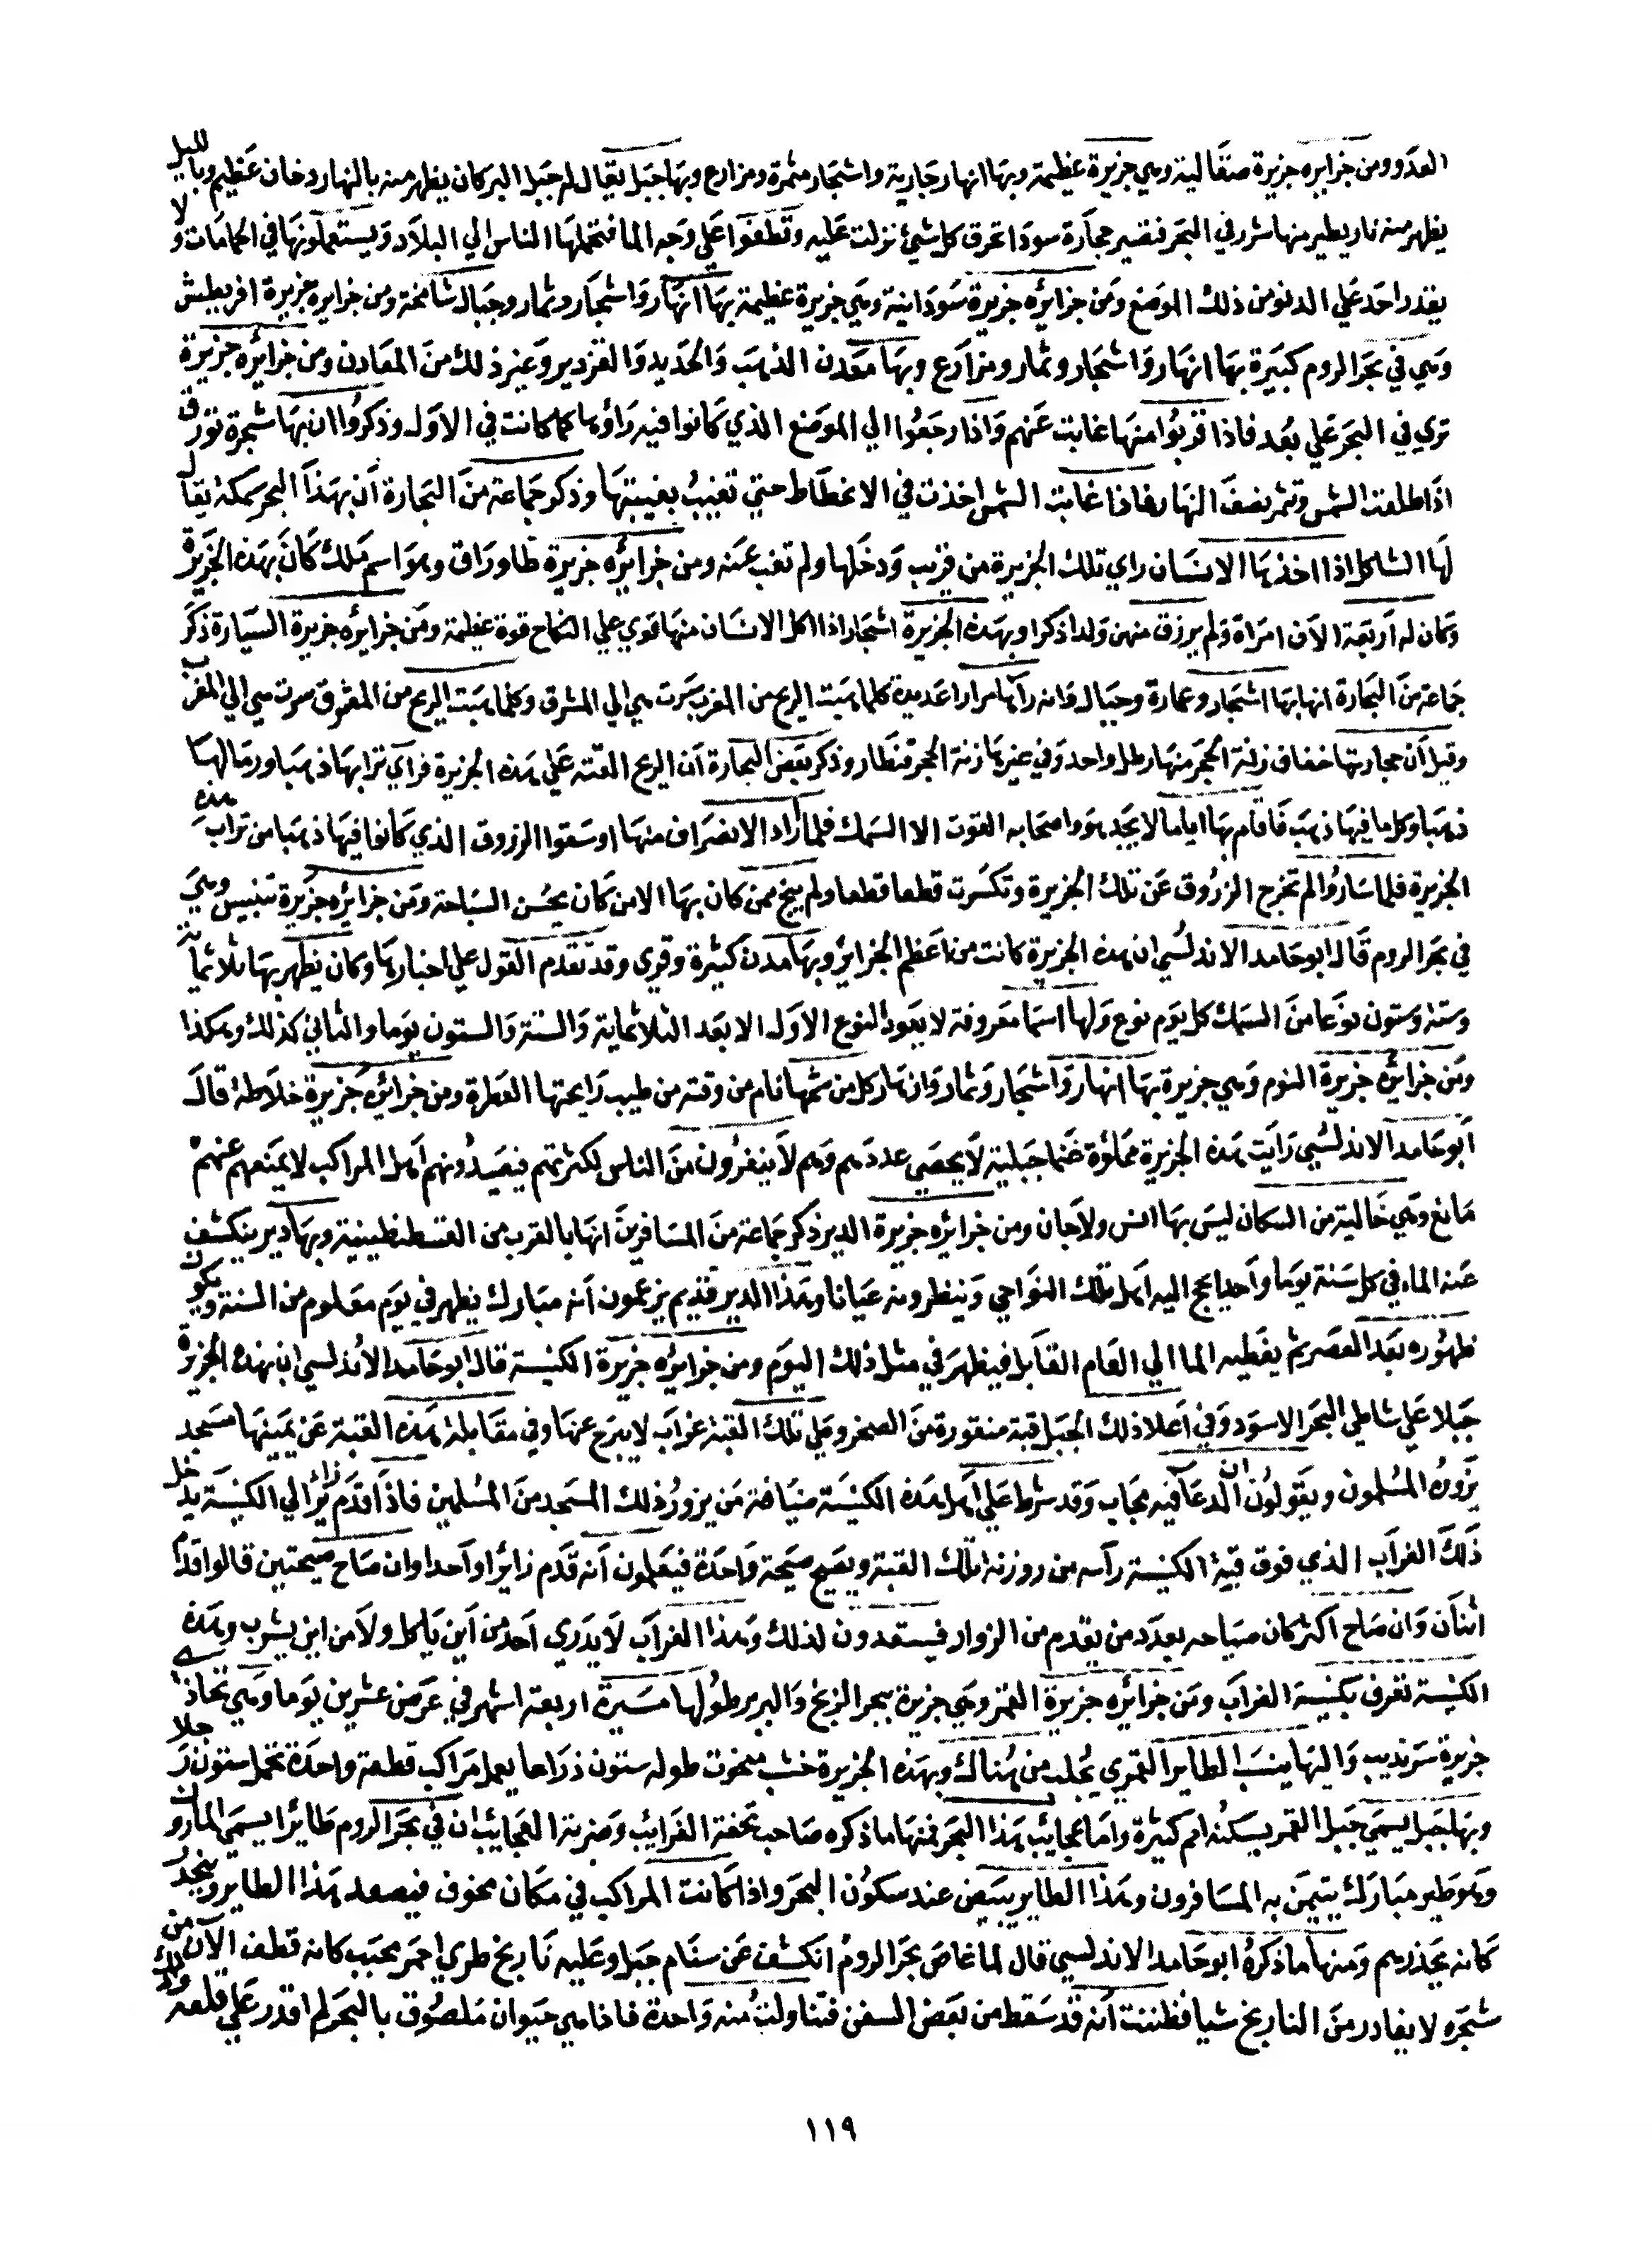 العدو ومن جزايره جزيرة صقالية وهي جزيرة عظيمة وبها انهار جارية واشجار مثمرة ومزارع وبها جبل يقال له جبل البركان يظهر منه بالنهار دخان عظيم وبالليل
يظهر منه نار يطير منها شرر في البحر فتصير حجارة سودا تحرق كل شيء نزلت عليه وتطفوا علي وجه الما فتحملها الناس الي البلاد ويستعملونها في الحمامات ولا
يقدر احد علي الدنو من ذلك الموضع ومن جزائره جزيرة سودانية وهي جزيرة عظيمة بها انهار واشجار وثمار وجبال شامخة ومن جزايره جزيرة اقريطيش
وهي في بحر الروم كبيرة بها انهار واشجار وثمار ومزارع وبها معدن الذهب والحديد والقزدير وغير ذلك من المعادن ومن جزائره جزيرة
تري في البحر علي بعد فاذا قربوا منها غابت عنهم واذا رجعوا الي الموضع الذي كانوا فيه راؤها كما كانت في الاول وذكروا ان بها شجرة تورق
اذا طلعت الشمس وتثمر نصف النهار فاذا غابت الشمس اخذت في الانحطاط حتي تغيب بغيبتها وذكر جماعة من البحارة أن بهذا البحر سمكة يقال
لها الشاكل اذا اخذها الانسان راي تلك الجزيرة من قريب ودخلها ولم تغب عنه ومن جزائره جزيرة طاوراق وهو اسم ملك كان بهذه الجزيرة
وكان له أربعة الاف امراة ولم يرزق منهن ولدا ذكرا وبهذه الجزيرة اشجار اذا اكل الانسان منها قوي علي النكاح قوة عظيمة ومن جزائره جزيرة السيارة ذكر
جماعة من البحارة انها بها اشجار وعمارة وجبال وانه رآها مرارا عديدة كلما هبت الريح من المغرب سرت هي الي المشرق وكلما هبت الريح من المشرق سرت هي الي المغرب
وقيل أن حجارتها خفاف زنة الحجر منها رطل واحد وفي غيرها زنة الحجر قنطار وذكر بعض البحارة أن الريح القته علي هذه الجزيرة فرآي ترابها ذهبا ورمالها
ذهبا وكل ما فيها ذهب فاقام بها اياما لا يجد هو واصحابه القوت الا السمك فلما أراد الانصراف منها اوسقوا الزروق الذي كانوا فيها ذهبا من تراب هذه
الجزيرة فلما ساروا لم تخرج الزروق عن تلك الجزيرة وتكسرت قطعا قطعا ولم ينج ممن كان بها الا من كان يحسن السباحة ومن جزائره جزيرة تنيس وهي
في بحر الروم قال ابو حامد الاندلسي ان هذه الجزيرة كانت من اعظم الجزائر وبها مدن كثيرة وقري وقد تقدم القول علي اخبارها وكان يظهر بها ثلاثماية
وستة وستون نوعا من السمك كل يوم نوع ولها اسما معروفة لا يعود النوع الاول الا بعد الثلاثماية والستة والستون يوما والثاني كذلك وهكذا
ومن جزائره جزيرة النوم وهي جزيرة بها انهار واشجار وثمار وازهار كل من شمها نام من وقته من طيب رايحتها العطرة ومن جزائره جزيرة خلاطة قال
أبو حامد الاندلسي رايت هذه الجزيرة مملؤة غنما جبلية لا يحصي عددهم وهم لا ينفرون من الناس لكثرتهم فيصيدونهم اهل المراكب لا يمنعهم عنهم
مانع وهي خالية من السكان ليس بها انس ولا جان ومن جزائره جزيرة الدير ذكر جماعة من المسافرين انها بالقرب من القسطنطينية وبها دير ينكشف
عنه الماء في كل سنة يوما واحدا يحج اليه اهل تلك النواحي وينظرونه عيانا وهذا الدير قديم يزعمون أنه مبارك يظهر في يوم معلوم من السنة ويكون
ظهوره بعد العصر ثم يغطيه الما الي العام القابل فيظهر في مثل ذلك اليوم ومن جزايره جزيرة الكنيسة قال ابو حامد الاندلسي ان بهذه الجزيرة
جبلا علي شاطي البحر الاسود وفي أعلا ذلك الجبل قبة منقورة من الصخر وعلي تلك القبة غراب لا يبرح عنها وفي مقابلة هذه القبة عن يمينها مسجد
يزوره المسلمون ويقولون ان الدعا فيه مجاب وقد شرط علي اهل هذه الكنيسة ضيافة من يزور ذلك المسجد من المسلمين فاذا قدم زائر الي الكنيسة يدخل
ذلك الغراب الذي فوق قبة الكنيسة رآسه من روزنة تلك القبة ويصيح صيحة واحدة فيعلمون أنه قدم زايرا واحدا وان صاح صيحتين قالوا قدم
اثنان وان صاح اكثر كان صياحه بعدد من يقدم من الزوار فيستعدون لذلك وهذا الغراب لا يدري احد من أين ياكل ولا من اين يشرب وهذه
الكنيسة تعرف بكنيسة الغراب ومن جزائره جزيرة القمر وهي جزيرة ببحر الزنج والبربر طولها مسيرة اربعة اشهر في عرض عشرين يوما وهي تحاذي
جزيرة سرنديب واليها ينسب الطاير القمري يجلب من هناك وبهذه الجزيرة خشب منحوت طوله ستون ذراعا يعمل مراكب قطعة واحدة تحمل ستون رجلا
وبها جبل يسمي جبل القمر يسكنه امم كثيرة واما عجائب هذا البحر فمنها ما ذكره صاحب تحفة الغرايب وضربة العجايب ان في بحر الروم طائرا يسمي المارون
وهو طير مبارك يتيمن به المسافرون وهذا الطاير يبيض عند سكون البحر واذا كانت المراكب في مكان مخوف فيصعد هذا الطاير وينحدر
كانه يحذرهم ومنها ما ذكره ابو حامد الاندلسي قال لما غاص بحر الروم انكشف عن سنام جبل وعليه نارنج طري احمر بحبب كانه قطف الآن من
شجره لا يغادر من النارنج شيا فظننت أنه قد سقط من بعض السفن فتناولت منه واحدة فاذا هي حيوان ملصوق بالبحر لم اقدر علي قلعه